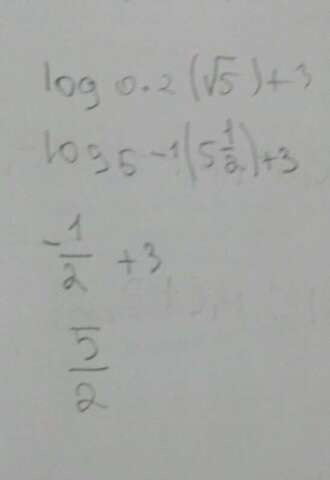 log 0.2 (√5)+3
log 5 -1(5 1/2)+3
-1/2 +3
5/2